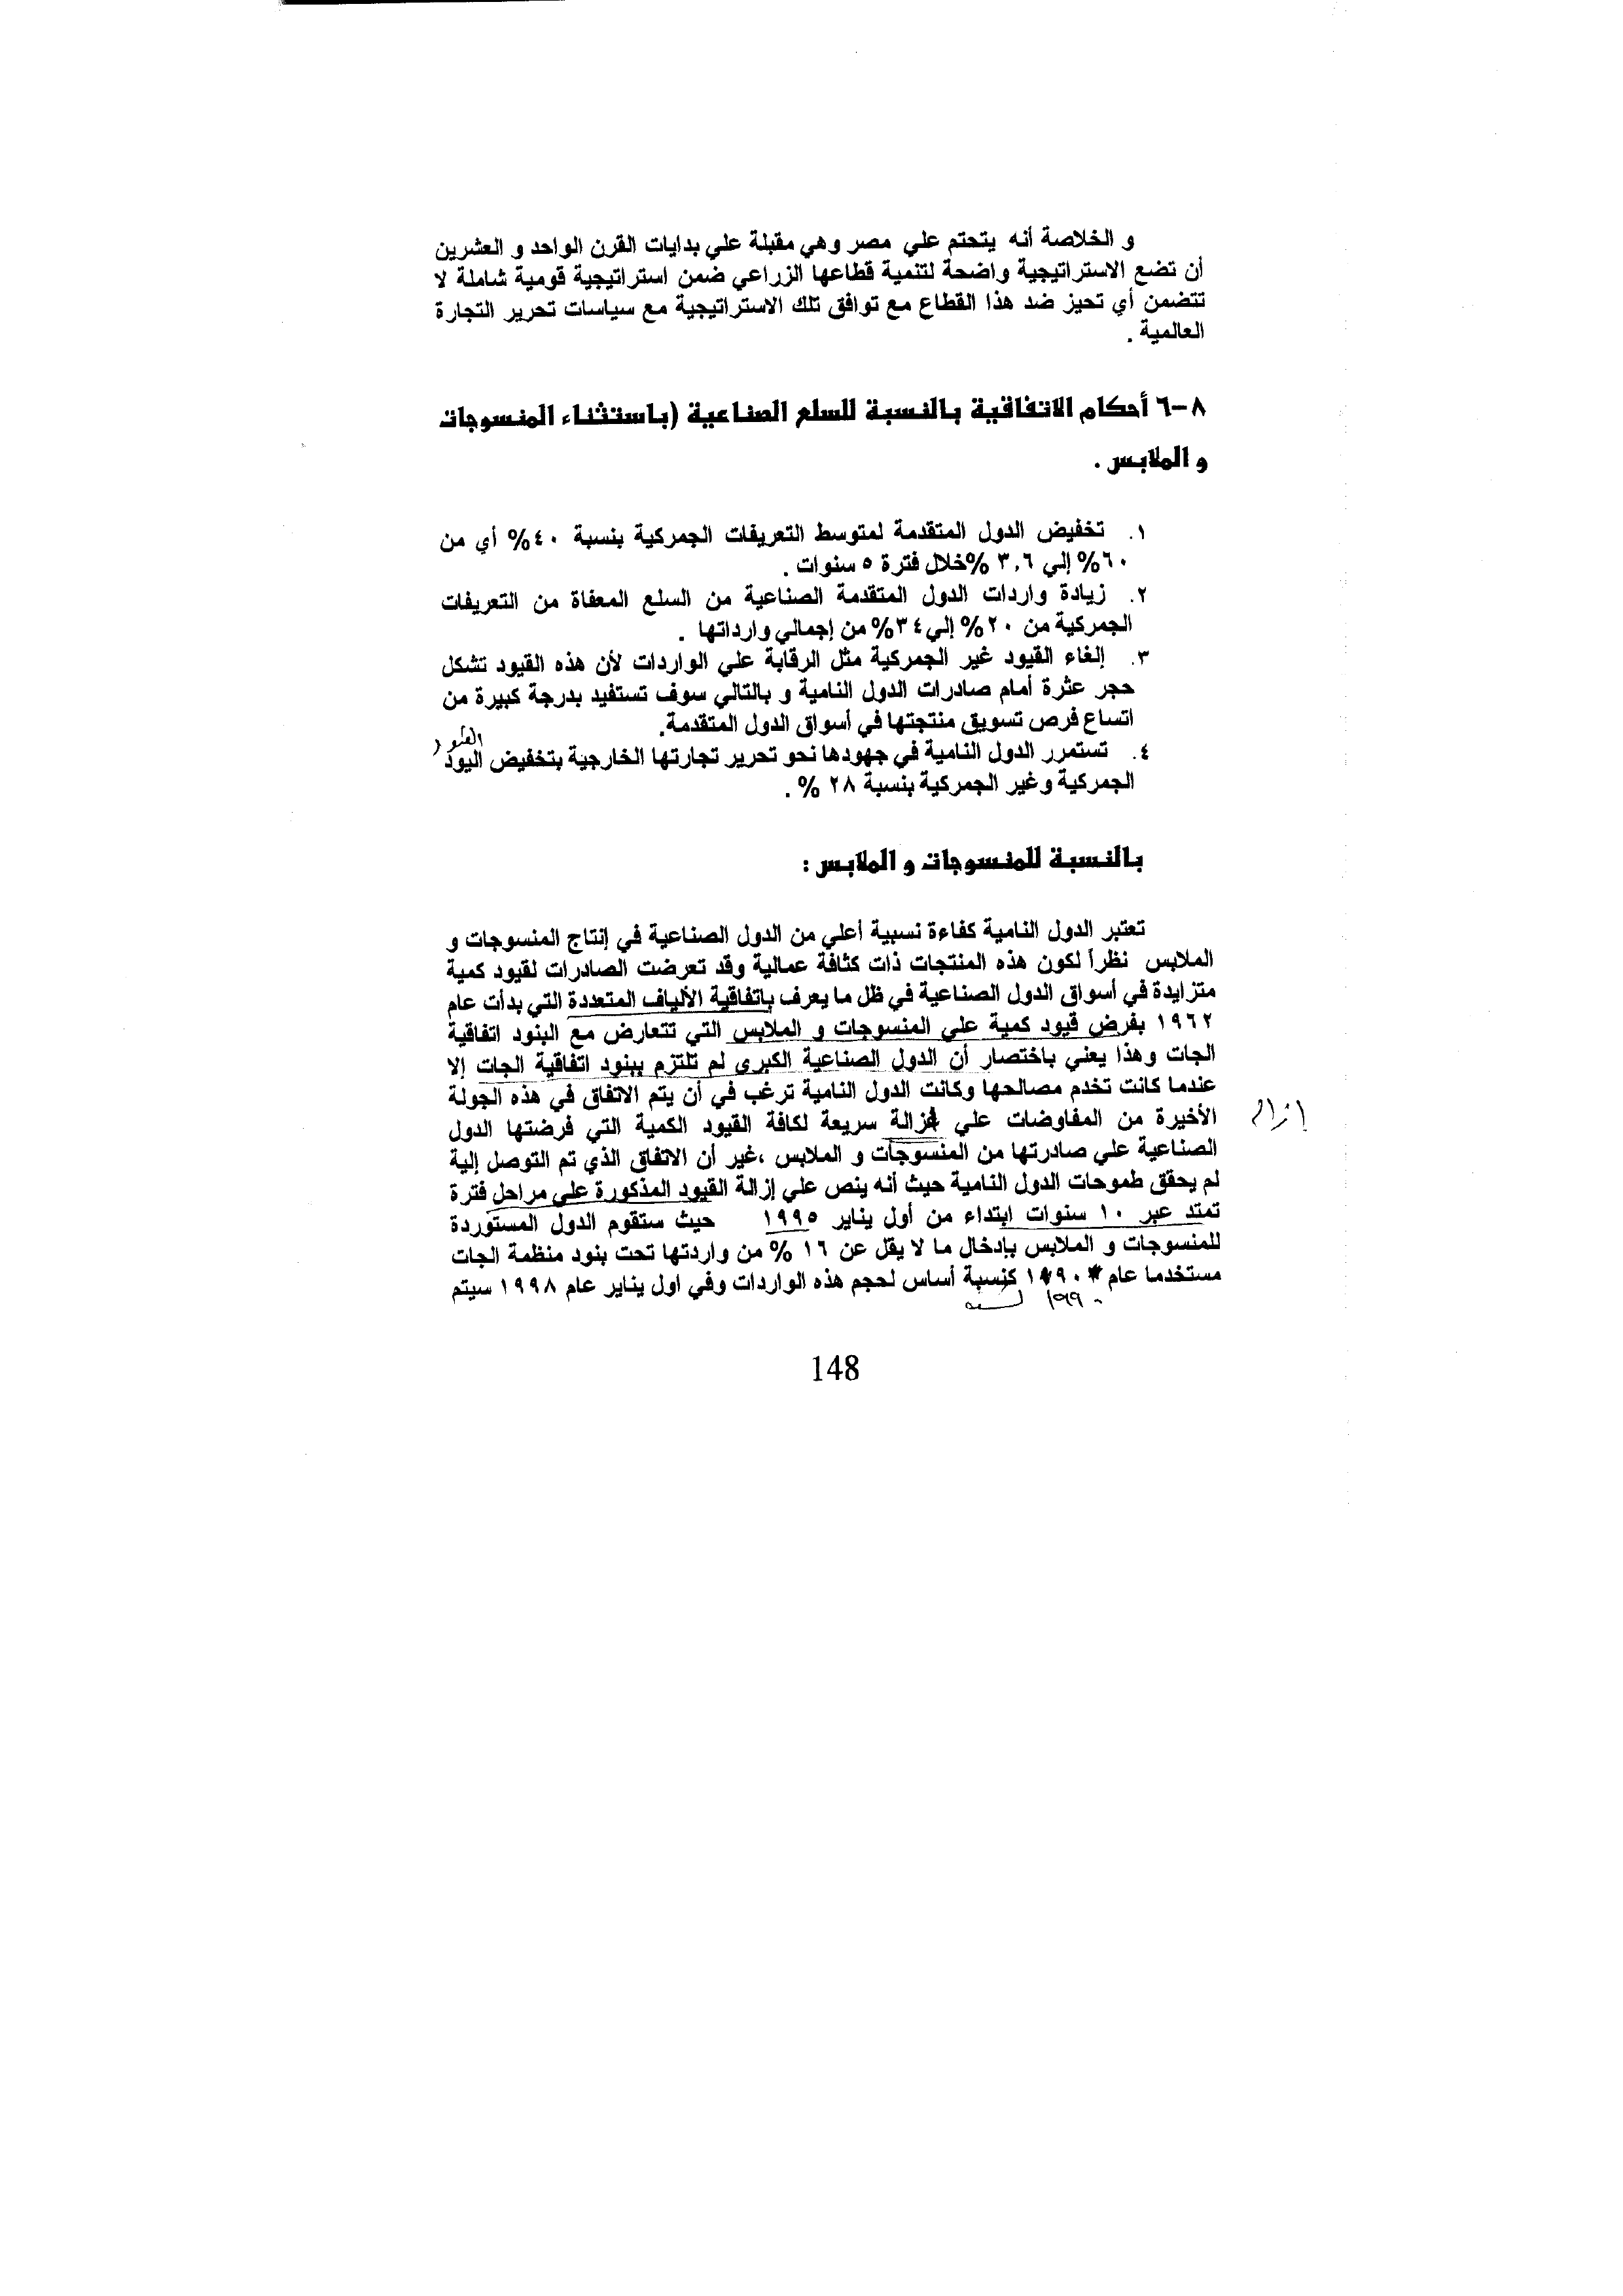 و الخلاصة أنه يتحتم علي مصر وهي مقبلة علي بدايات القرن الواحد و العشرين
أن تضع الاستراتيجية واضحة لتنمية قطاعها الزراعي ضمن استراتيجية قومية شاملة لا
تتضمن أي تحيز ضد هذا القطاع مع توافق تلك الاستراتيجية مع سياسات تحرير التجارة
العالمية .
٨-٦ أحكام الاتفاقية بالنسبة للسلع الصناعية (باستثناء المنسوجات
و الملابس .
١. تخفيض الدول المتقدمة لمتوسط التعريفات الجمركية بنسبة ٤٠% أي من
٦٠% إلي ٣,٦ %خلال فترة ٥ سنوات .
٢. زيادة واردات الدول المتقدمة الصناعية من السلع المعفاة من التعريفات
الجمركية من ٢٠% إلي٣٤% من إجمالي وارداتها .
٣. إلغاء القيود غير الجمركية مثل الرقابة علي الواردات لأن هذه القيود تشكل
حجر عثرة أمام صادرات الدول النامية و بالتالي سوف تستفيد بدرجة كبيرة من
اتساع فرص تسويق منتجتها في أسواق الدول المتقدمة.
٤. تستمرر الدول النامية في جهودها نحو تحرير تجارتها الخارجية بتخفيض اليود
الجمركية وغير الجمركية بنسبة ٢٨ % .
بالنسبة للمنسوجات و الملابس :
تعتبر الدول النامية كفاءة نسبية أعلي من الدول الصناعية في إنتاج المنسوجات و
الملابس نظراً لكون هذه المنتجات ذات كثافة عمالية وقد تعرضت الصادرات لقيود كمية
متزايدة في أسواق الدول الصناعية في ظل ما يعرف باتفاقية الألياف المتعددة التي بدأت عام
١٩٦٢ بفرض قيود كمية علي المنسوجات و الملابس التي تتعارض مع البنود اتفاقية
الجات وهذا يعني باختصار أن الدول الصناعية الكبرى لم تلتزم ببنود اتفاقية الجات إلا
عندما كانت تخدم مصالحها وكانت الدول النامية ترغب في أن يتم الاتفاق في هذه الجولة
الأخيرة من المفاوضات علي إزالة سريعة لكافة القيود الكمية التي فرضتها الدول
ازالة
الصناعية علي صادرتها من المنسوجات و الملابس ،غير أن الاتفاق الذي تم التوصل إلية
لم يحقق طموحات الدول النامية حيث أنه ينص علي إزالة القيود المذكورة على مراحل فترة
تمتد عبر ١٠ سنوات ابتداء من أول يناير ١٩٩٥ حيث ستقوم الدول المستوردة
للمنسوجات و الملابس بإدخال ما لا يقل عن ١٦ % من واردتها تحت بنود منظمة الجات
مستخدما عام ١٩٩٠ كنسبة أساس لحجم هذه الواردات وفي اول يناير عام ١٩٩٨ سيتم
١٩٩٠
148